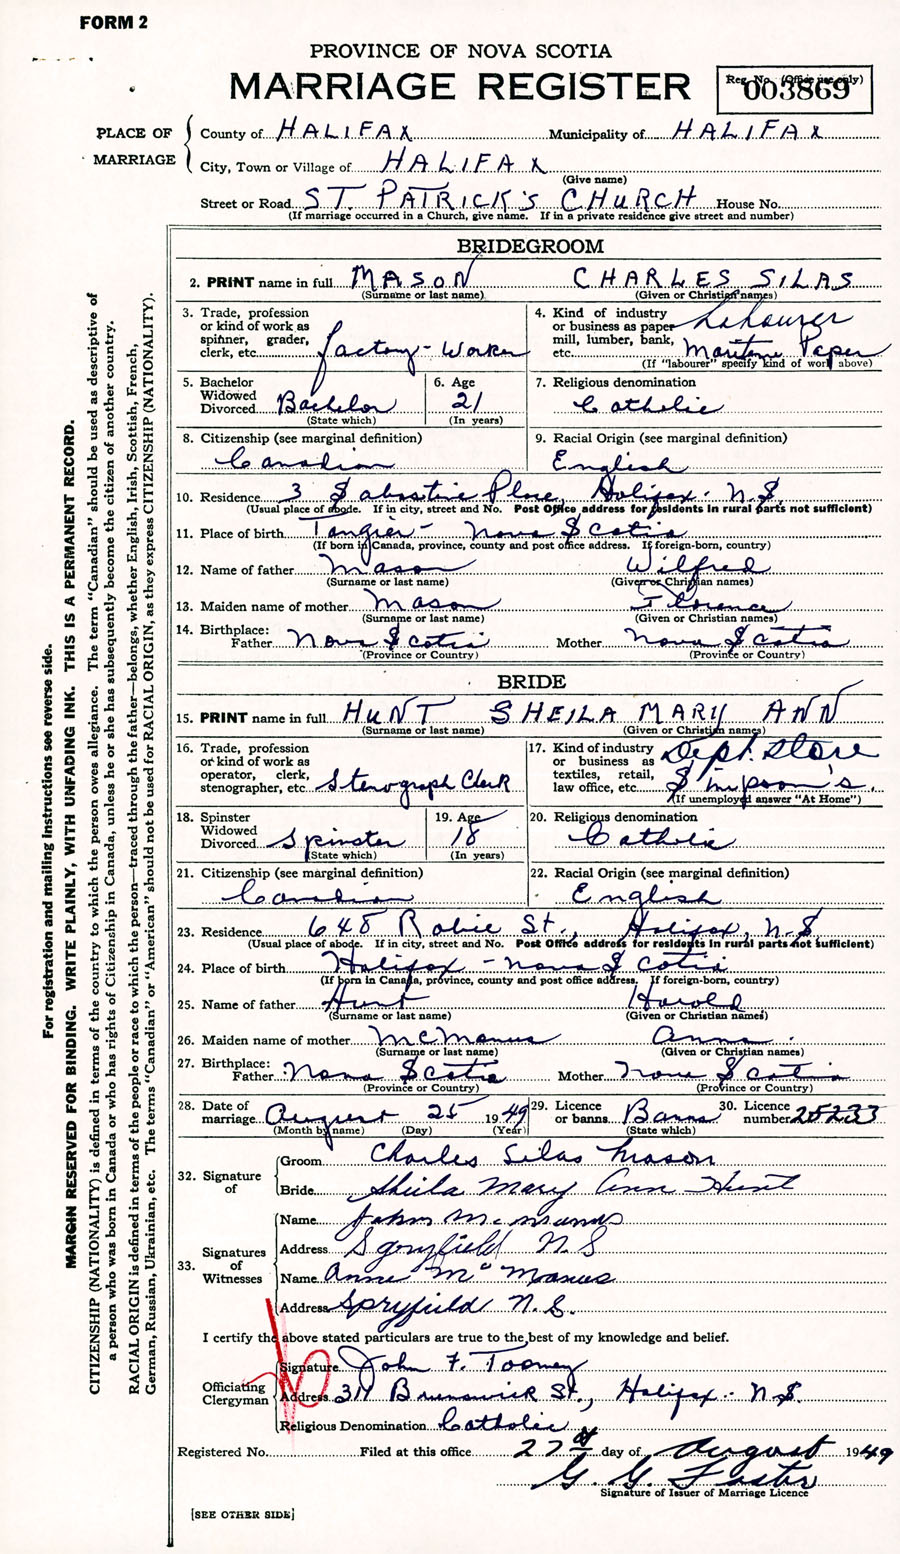 FORM 2
PROVINCE OF NOVA SCOTIA
MARRIAGE REGISTER
Reg. No. (Office use only)
003869
PLACE OF MARRIAGE
County of HALIFAX Municipality of HALIFAX
City, Town or Village of HALIFAX
(Give name)
Street or Road ST. PATRICK'S CHURCH House No.
(If marriage occurred in a Church, give name. If in a private residence give street and number)
BRIDEGROOM
2. PRINT name in full MASON CHARLES SILAS
(Surname or last name) (Given or Christian names)
3. Trade, profession or kind of work as spinner, grader, clerk, etc. factory-Worker
4. Kind of industry or business as paper mill, lumber, bank, etc. Labourer Maritime Paper
(If "labourer" specify kind of work above)
5. Bachelor Widowed Divorced Bachelor
(State which)
6. Age 21
(In years)
7. Religious denomination Catholic
8. Citizenship (see marginal definition) Canadian
9. Racial Origin (see marginal definition) English
10. Residence 3 Place, Halifax - N.S.
(Usual place of abode. If in city, street and No. Post Office address for residents in rural parts not sufficient)
11. Place of birth Tangier - Nova Scotia
(If born in Canada, province, county and post office address. If foreign-born, country)
12. Name of father Mason Wilfred
(Surname or last name) (Given or Christian names)
13. Maiden name of mother Mason Florence
(Surname or last name) (Given or Christian names)
14. Birthplace: Father Nova Scotia Mother Nova Scotia
(Province or Country) (Province or Country)
BRIDE
15. PRINT name in full HUNT SHEILA MARY ANN
(Surname or last name) (Given or Christian names)
16. Trade, profession or kind of work as operator, clerk, stenographer, etc. Stenograph Clerk
17. Kind of industry or business as textiles, retail, law office, etc. Dept. Store Simpson's
(If unemployed answer "At Home")
18. Spinster Widowed Divorced Spinster
(State which)
19. Age 18
(In years)
20. Religious denomination Catholic
21. Citizenship (see marginal definition) Canadian
22. Racial Origin (see marginal definition) English
23. Residence 648 Robie St., Halifax, N.S.
(Usual place of abode. If in city, street and No. Post Office address for residents in rural parts not sufficient)
24. Place of birth Halifax - Nova Scotia
(If born in Canada, province, county and post office address. If foreign-born, country)
25. Name of father Hunt Harold
(Surname or last name) (Given or Christian names)
26. Maiden name of mother McManus Anna
(Surname or last name) (Given or Christian names)
27. Birthplace: Father Nova Scotia Mother Nova Scotia
(Province or Country) (Province or Country)
28. Date of marriage August 25 1949
(Month by name) (Day) (Year)
29. Licence or banns Banns
(State which)
30. Licence number 25233
32. Signature of
Groom Charles Silas Mason
Bride Sheila Mary Ann Hunt
33. Signatures of Witnesses
Name John McManus
Address Spryfield N.S
Name Anne McManus
Address Spryfield N.S.
I certify the above stated particulars are true to the best of my knowledge and belief.
Officiating Clergyman
Signature John F. Toomey
Address Brunswick St., Halifax - N.S.
Religious Denomination Catholic
Registered No. Filed at this office 27th day of August 1949
G. G. Foster
Signature of Issuer of Marriage Licence
[SEE OTHER SIDE]
For registration and mailing instructions see reverse side.
MARGIN RESERVED FOR BINDING. WRITE PLAINLY, WITH UNFADING INK. THIS IS A PERMANENT RECORD.
CITIZENSHIP (NATIONALITY) is defined in terms of the country to which the person owes allegiance. The term "Canadian" should be used as descriptive of
a person who was born in Canada or who has rights of Citizenship in Canada, unless he or she has subsequently become the citizen of another country.
RACIAL ORIGIN is defined in terms of the people or race to which the person—traced through the father—belongs, whether English, Irish, Scottish, French,
German, Russian, Ukrainian, etc. The terms "Canadian" or "American" should not be used for RACIAL ORIGIN, as they express CITIZENSHIP (NATIONALITY).